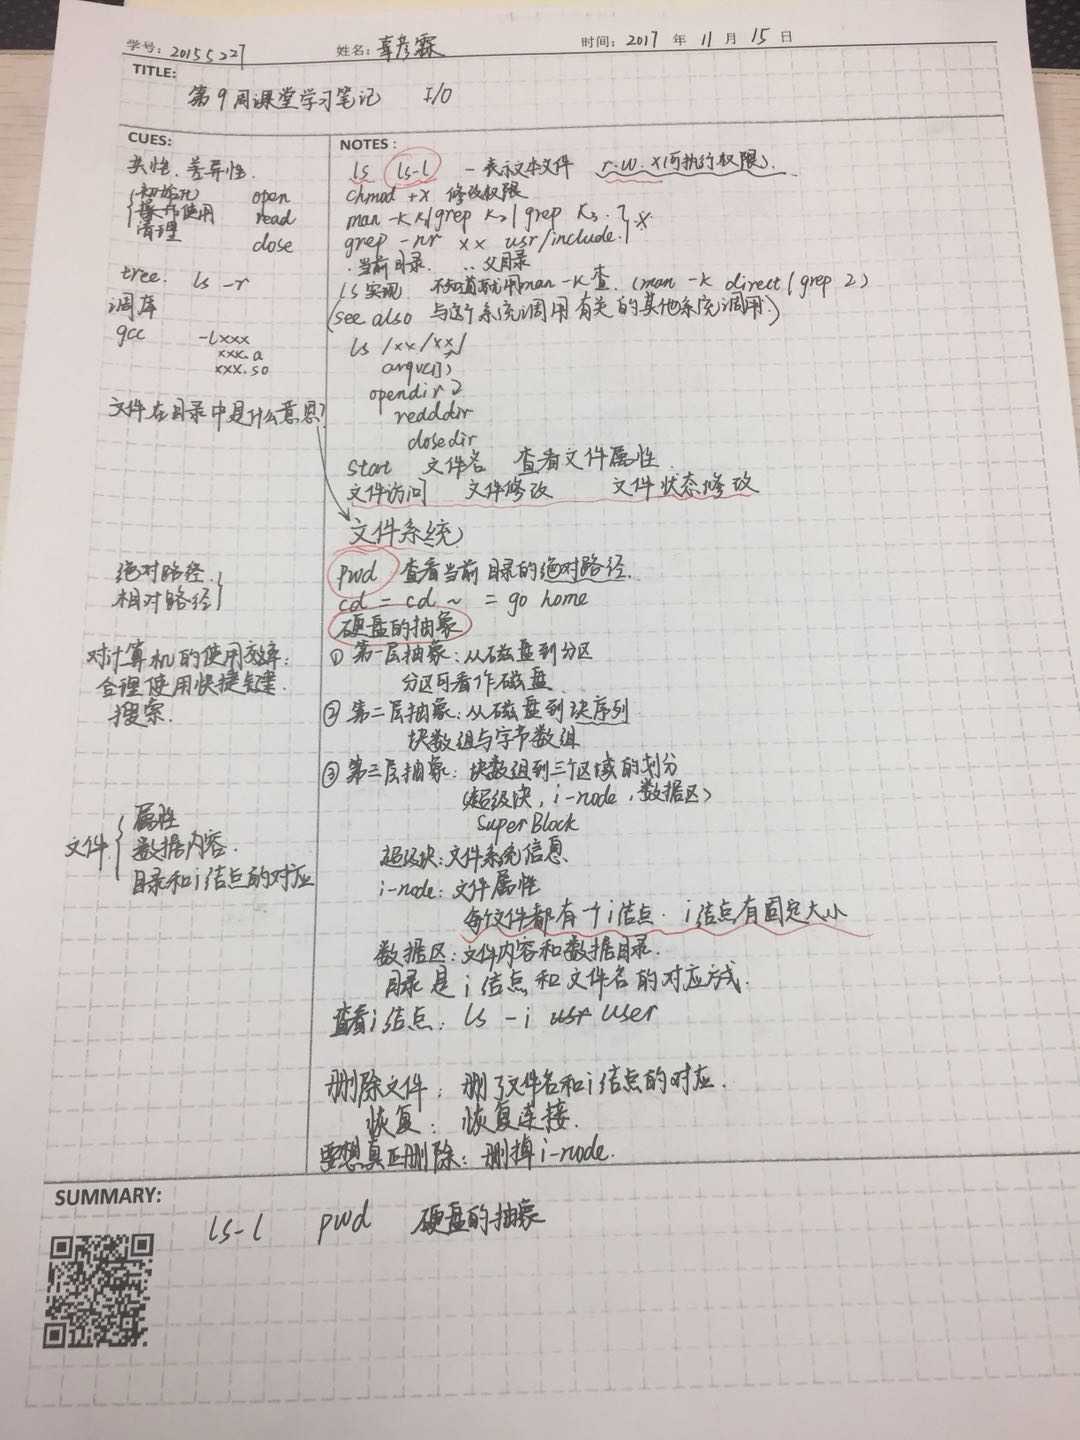 学号: 20155227 姓名: 辜彦霖 时间: 2017 年 11 月 15 日
TITLE:
第9周课堂学习笔记 I/O
CUES:
类性. 差异性.
初始化 open
使用 read
清理 close
tree. ls -r
调库
gcc -lxxx
xxx.a
xxx.so
文件在目录中是什么意思?
绝对路径.
相对路径
对计算机的使用效率:
合理使用快捷键.
搜索.
文件 属性
数据内容.
目录和i结点的对应
NOTES:
ls ls-l - 表示文本文件 r.w.x(可执行权限).
chmod +x 修改权限
man -k k1|grep k2|grep k3.
grep -nr xx usr/include. *
. 当前目录. .. 父目录
ls实现 不知道就用man -k查. (man -k direct|grep 2)
(see also 与这个系统调用有关的其他系统调用.)
ls /xx/xx/
argvc[])
opendir 2
redddir
closedir
start 文件名 查看文件属性
文件访问 文件修改 文件状态修改
文件系统
pwd 查看当前目录的绝对路径.
cd = cd ~ = go home
硬盘的抽象
① 第一层抽象: 从磁盘到分区
分区可看作磁盘
② 第二层抽象: 从磁盘到块序列
块数组与字节数组
③ 第三层抽象: 块数组到三个区域的划分
(超级块, i-node, 数据区)
Super Block
超级块: 文件系统信息.
i-node: 文件属性
每个文件都有一个i结点. i结点有固定大小
数据区: 文件内容和数据目录.
目录是i结点和文件名的对应方式.
查看i结点: ls -i usr user
删除文件: 删了文件名和i结点的对应.
恢复: 恢复连接.
要想真正删除: 删掉i-node.
SUMMARY:
ls-l pwd 硬盘的抽象